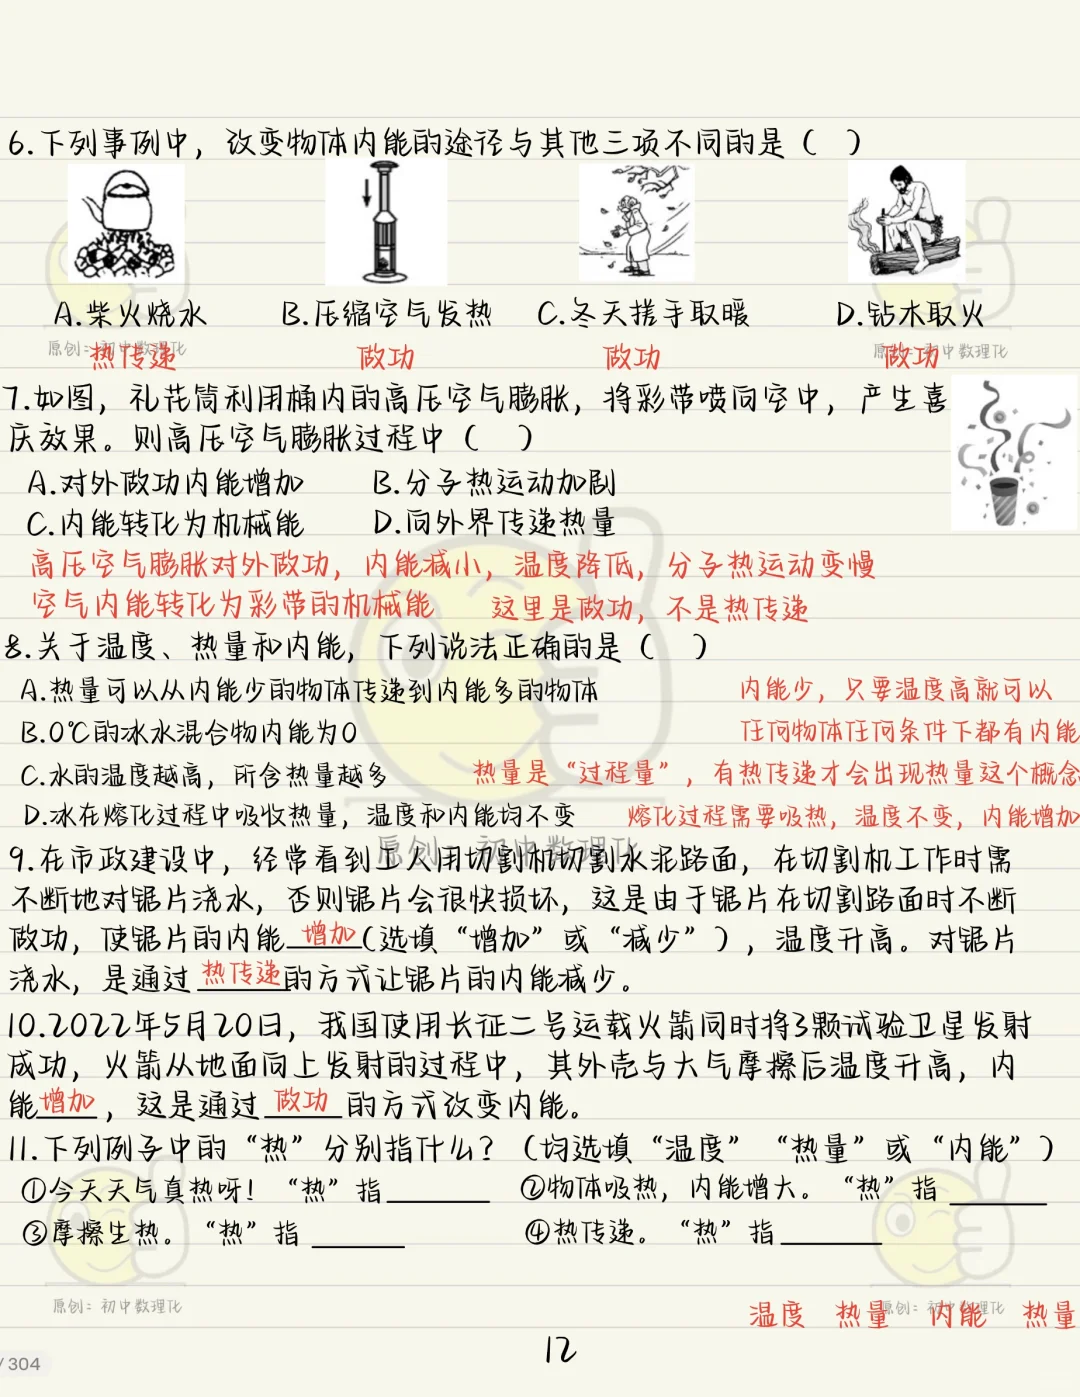 6.下列事例中，改变物体内能的途径与其他三项不同的是（ ）
A.柴火烧水 B.压缩空气发热 C.冬天搓手取暖 D.钻木取火
原创：初中数理化 原创：初中数理化
热传递 做功 做功 做功
7.如图，礼花筒利用桶内的高压空气膨胀，将彩带喷向空中，产生喜
庆效果。则高压空气膨胀过程中（ ）
A.对外做功内能增加 B.分子热运动加剧
C.内能转化为机械能 D.向外界传递热量
高压空气膨胀对外做功，内能减小，温度降低，分子热运动变慢
空气内能转化为彩带的机械能 这里是做功，不是热传递
8.关于温度、热量和内能，下列说法正确的是（ ）
A.热量可以从内能少的物体传递到内能多的物体 内能少，只要温度高就可以
B.0℃的冰水混合物内能为0 任何物体任何条件下都有内能
C.水的温度越高，所含热量越多 热量是“过程量”，有热传递才会出现热量这个概念
D.冰在熔化过程中吸收热量，温度和内能均不变 熔化过程需要吸热，温度不变，内能增加
原创：初中数理化
9.在市政建设中，经常看到工人用切割机切割水泥路面，在切割机工作时需
不断地对锯片浇水，否则锯片会很快损坏，这是由于锯片在切割路面时不断
做功，使锯片的内能 增加 (选填“增加”或“减少”)，温度升高。对锯片
浇水，是通过 热传递 的方式让锯片的内能减少。
10.2022年5月20日，我国使用长征二号运载火箭同时将3颗试验卫星发射
成功，火箭从地面向上发射的过程中，其外壳与大气摩擦后温度升高，内
能 增加 ，这是通过 做功 的方式改变内能。
11.下列例子中的“热”分别指什么？（均选填“温度”“热量”或“内能”）
①今天天气真热呀！“热”指______ ②物体吸热，内能增大。“热”指______
③摩擦生热。“热”指______ ④热传递。“热”指______
原创：初中数理化 原创：初中数理化
温度 热量 内能 热量
12
/304